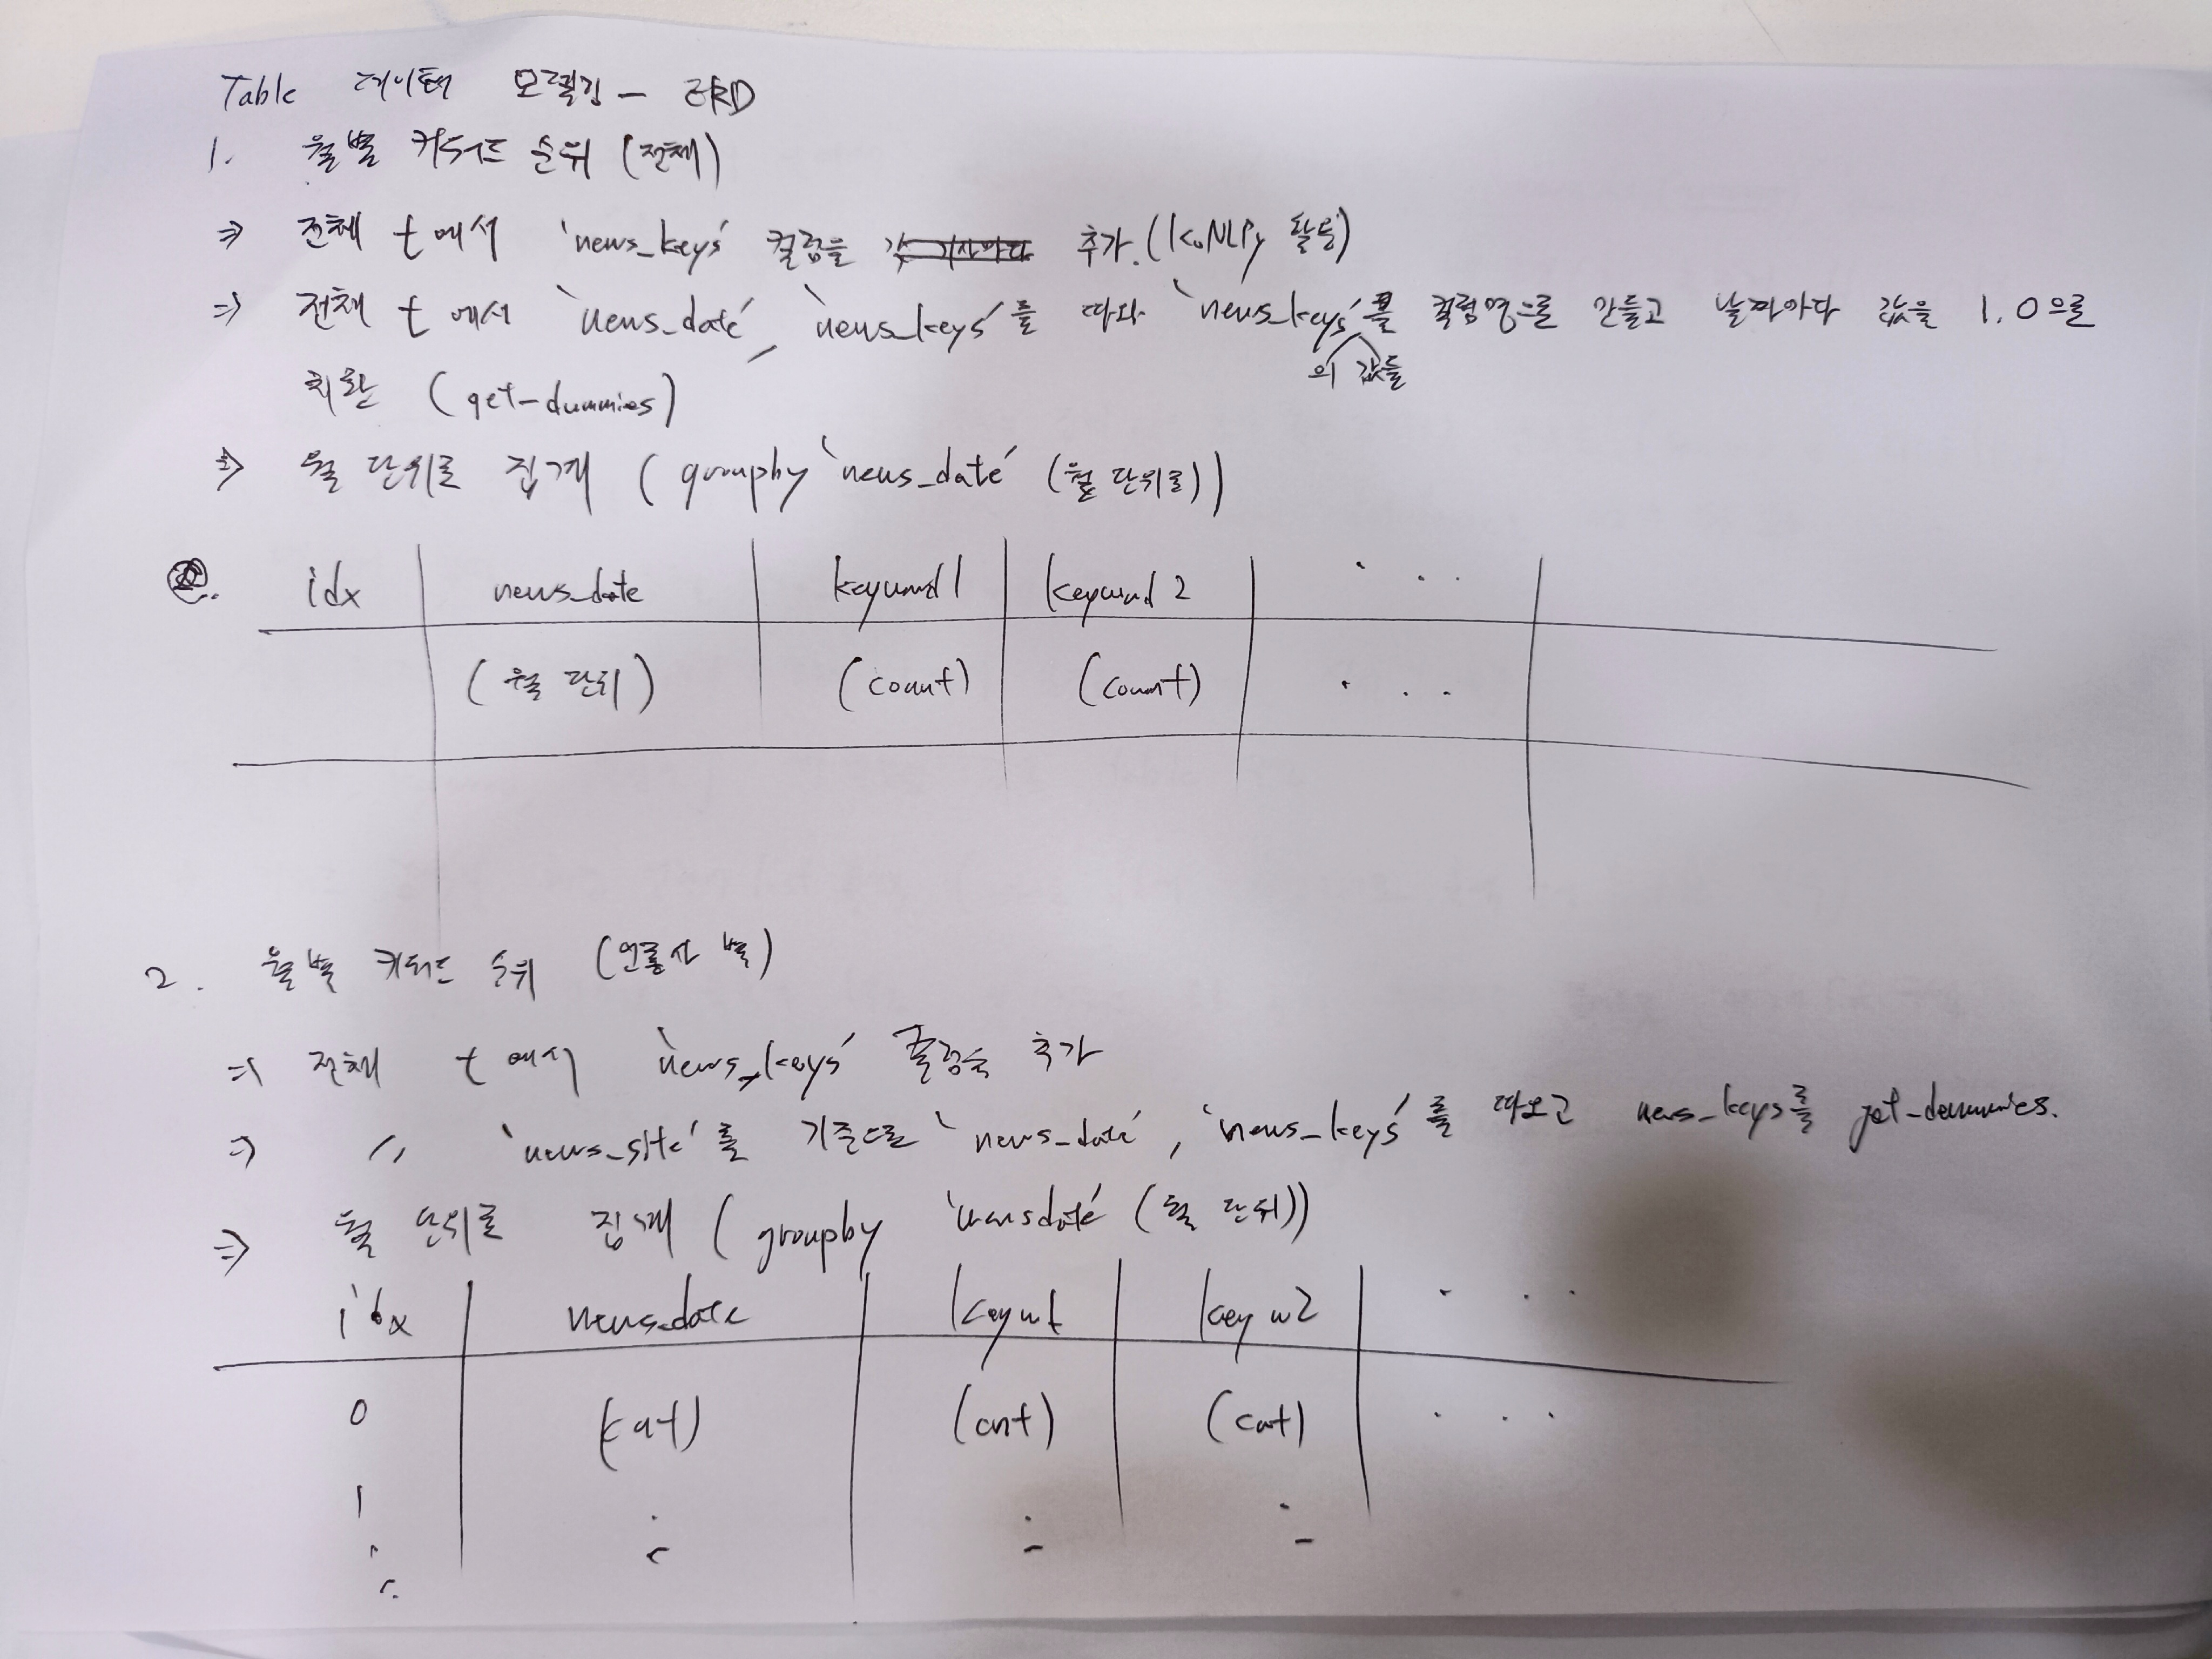 Table 데이터 모델링 - ERD
1. 월별 키워드 순위 (전체)
⇒ 전체 t에서 'news_keys' 컬럼을 추가. (KoNLPy 활용)
⇒ 전체 t에서 'news_date', 'news_keys'를 따와 'news_keys'의 값들을 컬럼명으로 만들고 날짜마다 값을 1.0으로
치환 (get-dummies)
⇒ 월 단위로 집계 (groupby 'news_date' (월 단위로))
idx news_date keyword1 keyword2 ...
(월 단위) (count) (count) ...
2. 월별 키워드 순위 (언론사 별)
⇒ 전체 t에서 'news_keys' 컬럼을 추가
⇒ 〃 'news_site'를 기준으로 'news_date', 'news_keys'를 따오고 news_keys를 get-dummies.
⇒ 월 단위로 집계 (groupby 'newsdate' (월 단위))
idx news_date keyw1 keyw2 ...
0 (cnt) (cnt) (cnt) ...
1